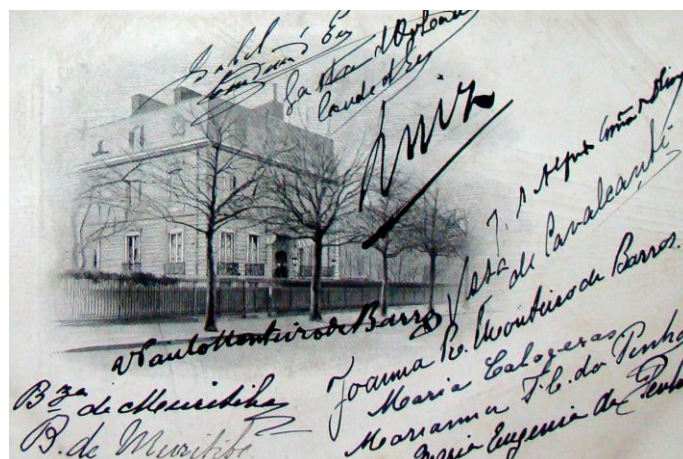 Isabel
Condessa d'Eu
Gaston d'Orleans
Conde d'Eu
Luiz
Alfredo
Vssa de Cavalcanti
Paulo Monteiro de Barros
Joanna R. Monteiro de Barros.
Maria Calogeras
Marianna F. C. da Penha
Maria Eugenia da Penha
Bza de Muritiba
B. de Muritiba.